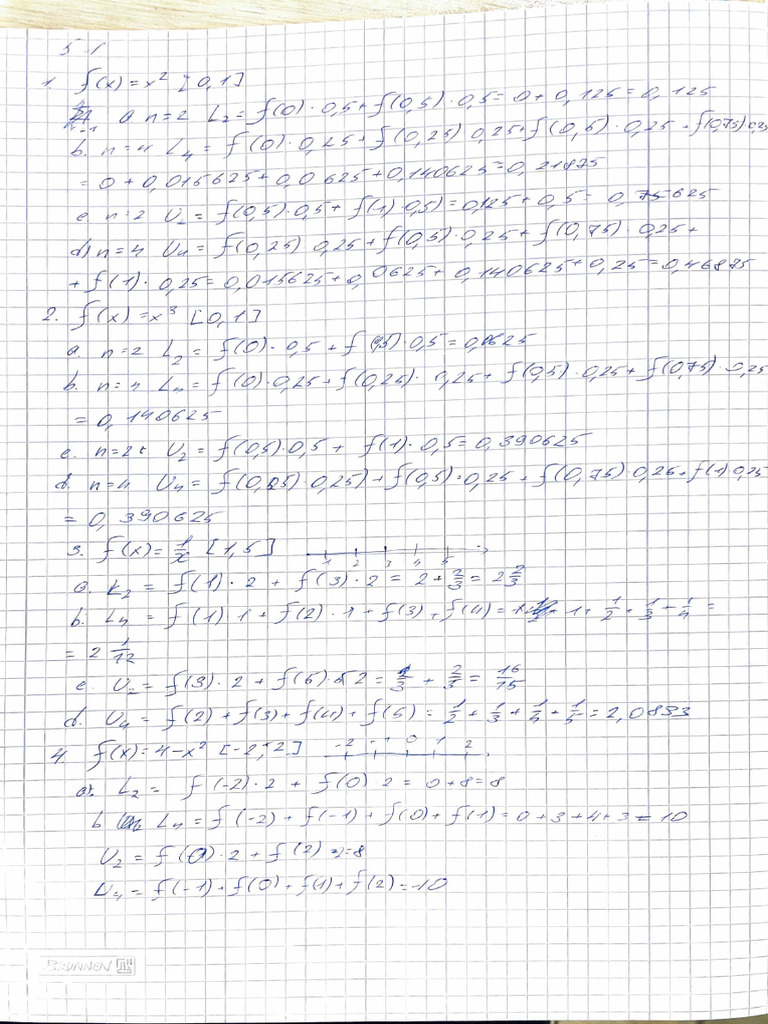 5-1
1. f(x) = x² [0,1]
a n=2 L₂ = f(0)·0,5 + f(0,5)·0,5 = 0 + 0,125 = 0,125
b. n=4 L₄ = f(0)·0,25 + f(0,25) 0,25 + f(0,5)·0,25 + f(0,75) 0,25
= 0 + 0,015625 + 0,0625 + 0,140625 = 0,21875
c n=2 U₂ = f(0,5)·0,5 + f(1)·0,5) = 0,125 + 0,5 = 0,625
d) n=4 U₄ = f(0,25) 0,25 + f(0,5)·0,25 + f(0,75)·0,25 +
+ f(1)·0,25 = 0,015625 + 0,0625 + 0,140625 + 0,25 = 0,46875
2. f(x) = x³ [0,1]
a. n=2 L₂ = f(0)·0,5 + f(0,5)·0,5 = 0,0625
b. n=4 L₄ = f(0)·0,25 + f(0,25)·0,25 + f(0,5)·0,25 + f(0,75)·0,25
= 0,140625
c. n=2 U₂ = f(0,5)·0,5 + f(1)·0,5 = 0,390625
d. n=4 U₄ = f(0,25)·0,25) + f(0,5)·0,25 + f(0,75)·0,25 + f(1)·0,25
= 0,390625
3. f(x) = 1/x [1,5] 1 2 3 4 5
a. L₂ = f(1)·2 + f(3)·2 = 2 + 2/3 = 2 2/3
b. L₄ = f(1)·1 + f(2)·1 + f(3) + f(4) = 1 + 1/2 + 1/3 + 1/4 =
= 2 1/12
c. U₂ = f(3)·2 + f(5)·2 = 2/3 + = 16/15
d. U₄ = f(2) + f(3) + f(4) + f(5) = 1/2 + 1/3 + 1/4 + 1/5 = 2,0833
4. f(x) = 4-x² [-2; 2] -2 -1 0 1 2
a. L₂ = f(-2)·2 + f(0) 2 = 0+8=8
b L₄ = f(-2) + f(-1) + f(0) + f(1) = 0+3+4+3 = 10
U₂ = f(0)·2 + f(2) = 8
U₄ = f(-1) + f(0) + f(1) + f(2) = 10
BRUNNEN